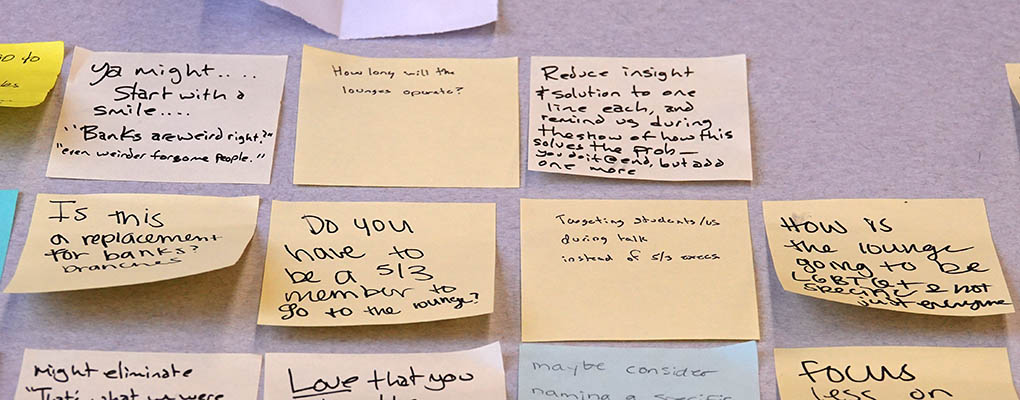 Ya might....
Start with a
smile....
"Banks are weird right?"
"even weirder for some people."
How long will the
lounges operate?
Reduce insight
& solution to one
line each, and
remind us during
the show of how this
solves the prob—
you do it @ end, but add
one more
Is this
a replacement
for banks?
branches
Do you
have to
be a 5/3
member to
go to the lounge?
Targeting students/us
during talk
instead of 5/3 execs
How is
the lounge
going to be
LGBTQ+ & not
specific
just everyone
Might eliminate
"That's what we were
Love that you
maybe consider
naming a specific
Focus
less on